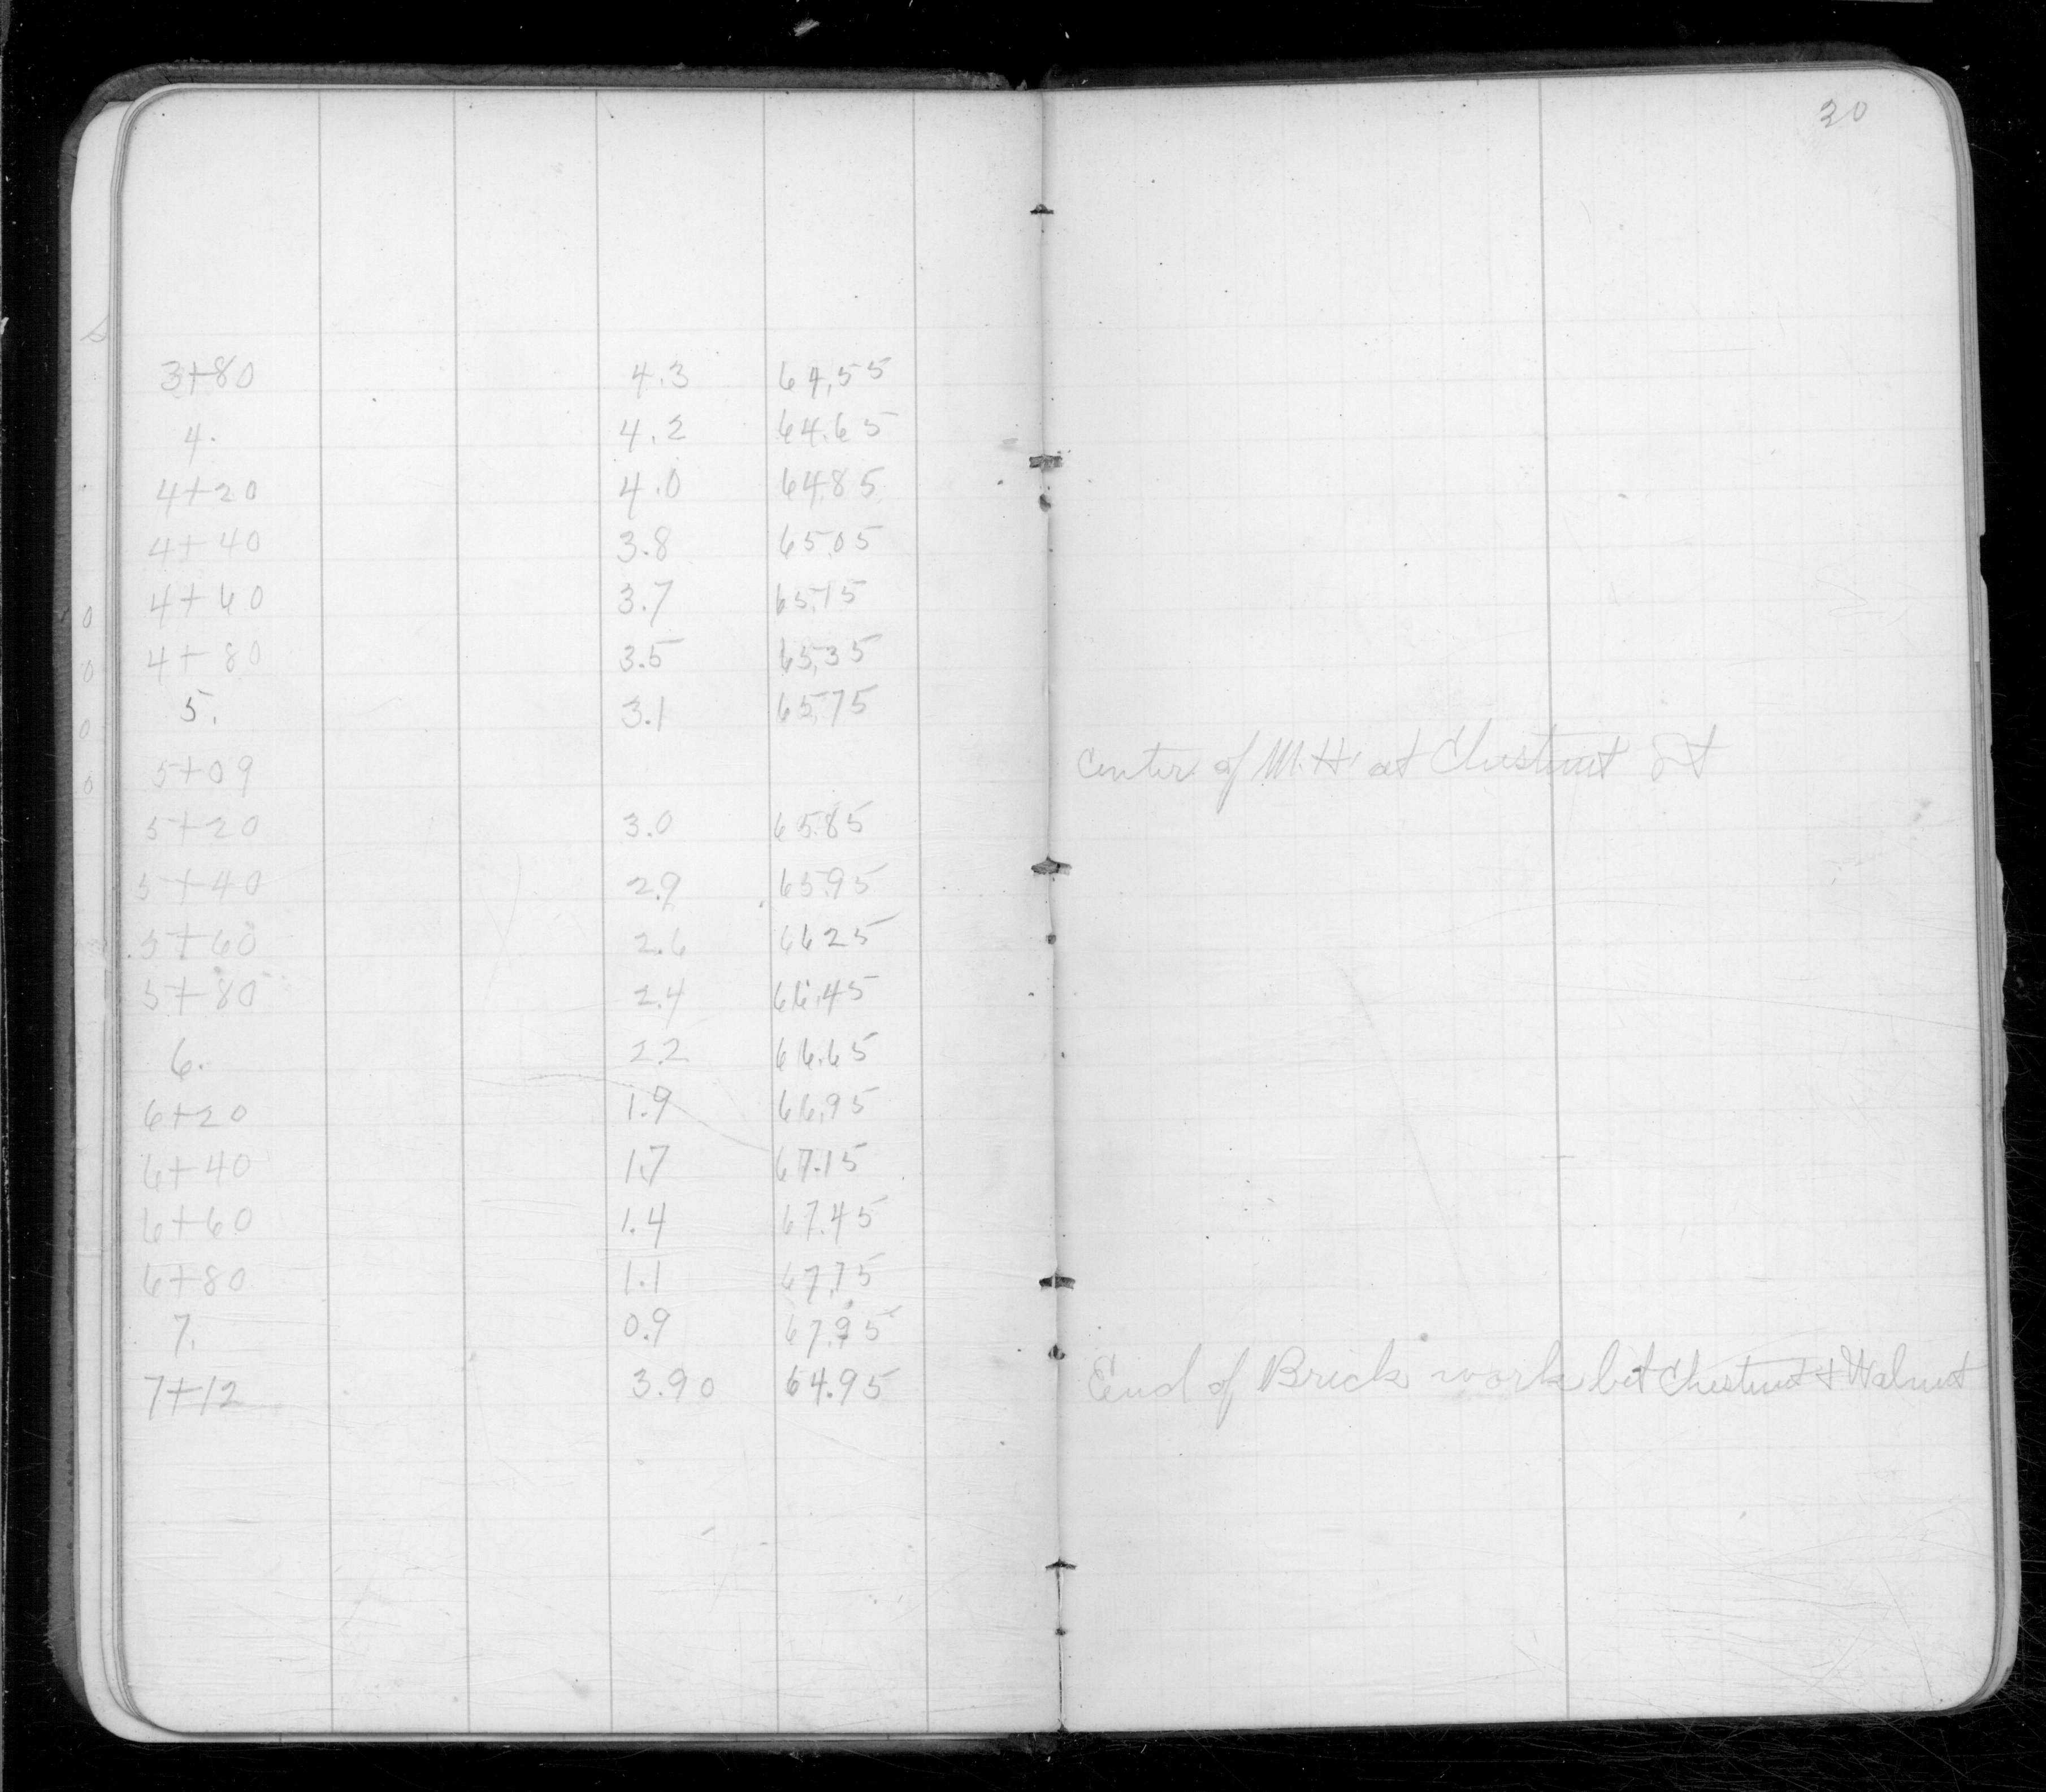 30
3+80 4.3 64.55
4. 4.2 64.65
4+20 4.0 64.85
4+40 3.8 65.05
4+60 3.7 65.15
4+80 3.5 65.35
5. 3.1 65.75
5+09 Center of M.H. at Chestnut St
5+20 3.0 65.85
5+40 2.9 65.95
5+60 2.6 66.25
5+80 2.4 66.45
6. 2.2 66.65
6+20 1.9 66.95
6+40 1.7 67.15
6+60 1.4 67.45
6+80 1.1 67.75
7. 0.9 67.95
7+12 3.90 64.95 End of Brick work bet Chestnut & Walnut